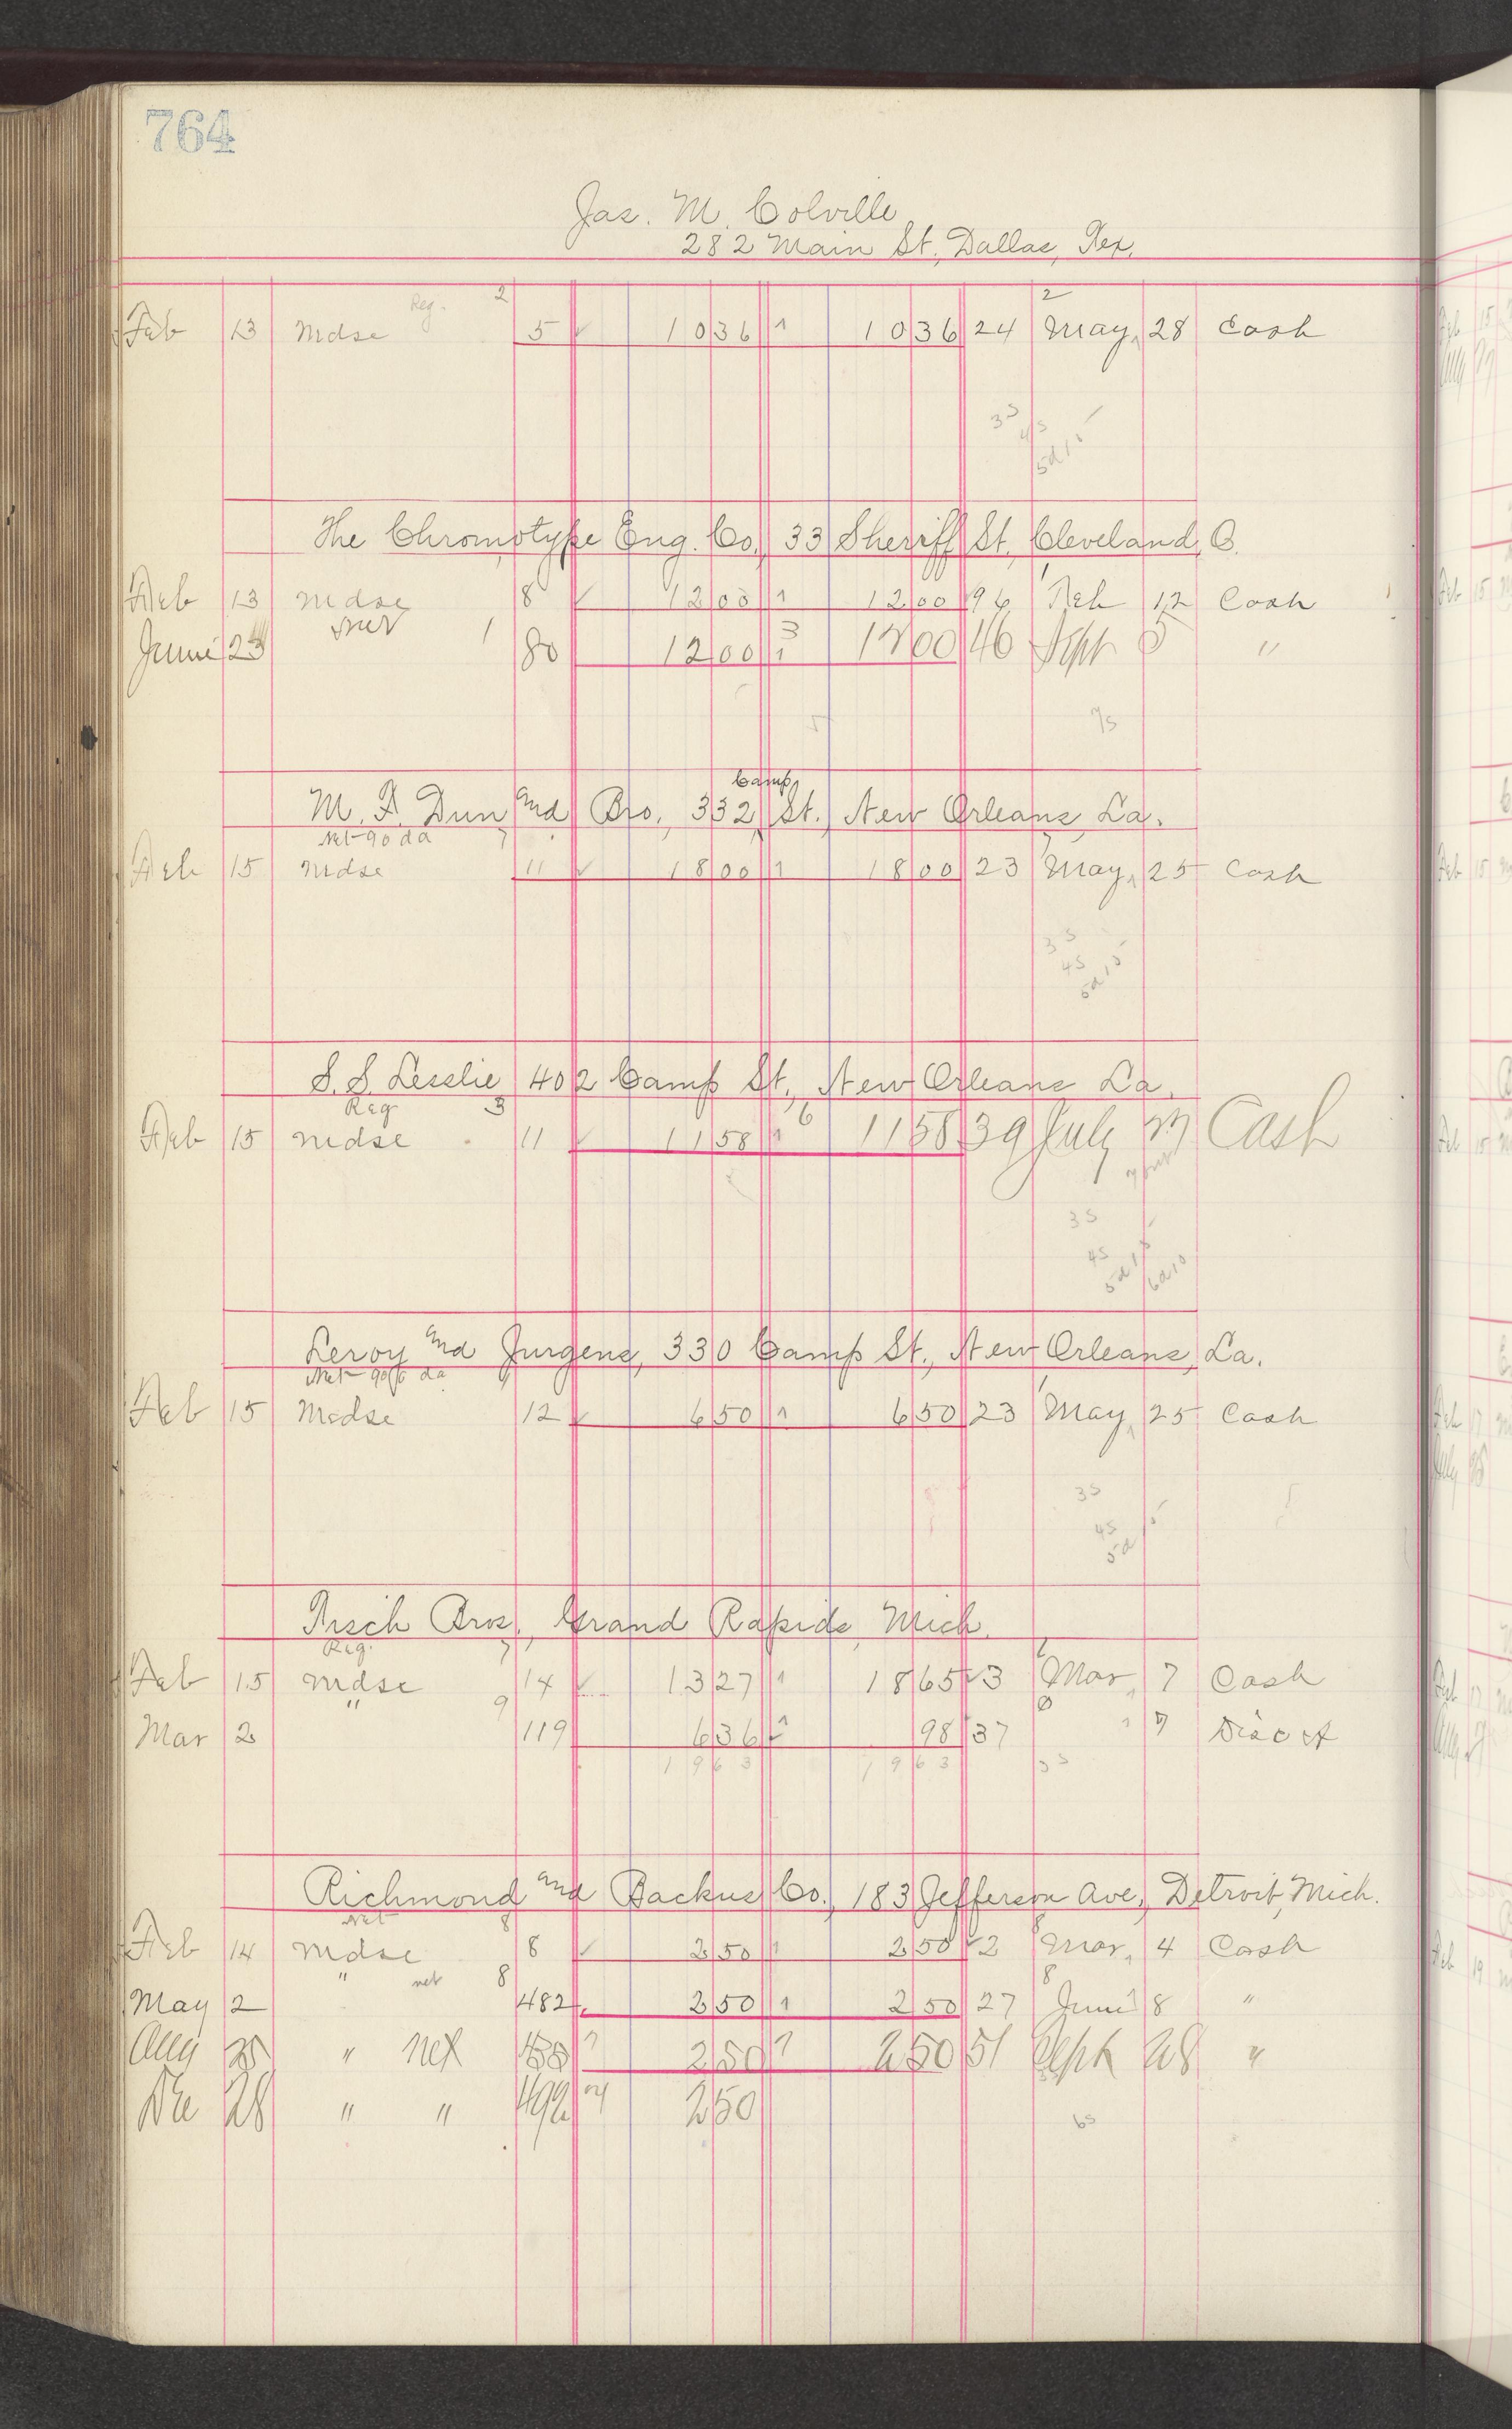 764
Jas. M. Colville
282 Main St., Dallas, Tex.
Reg. 2 2
Feb 13 mdse 5 ✓ 1036 1 1036 24 May, 28 Cash
3s
4s
5d15
The Chromotype Eng. Co., 33 Sheriff St. Cleveland, O.
Feb 13 mdse 8 ✓ 1200 1 1200 96 Feb 12 Cash
June 23 1 80 1200 3 1 1200 46 Sept 5 "
7s
Camp
M. F. Dunn and Bro., 332 St., New Orleans, La.
Net 90 da 7 7
Feb 15 mdse 11 ✓ 1800 1 1800 23 May, 25 Cash
3s
4s
5d15
S. S. Lesslie 402 Camp St., New Orleans La.
Reg 3 6
Feb 15 mdse 11 ✓ 1158 1 1158 39 July Cash
3s
4s
5d15 6d10
Leroy and Jurgens, 330 Camp St., New Orleans, La.
Net 90 da
Feb 15 Mdse 12 ✓ 650 1 650 23 May, 25 Cash
3s
4s
5d
Bros., Grand Rapids, Mich.
Reg. 7
Feb 15 mdse 14 ✓ 1327 1 1865 3 Mar, 7 Cash
Mar 2 " 9 119 636 98 37 " 7 Disct
1963 1963 3s
Richmond and Backus Co., 183 Jefferson Ave., Detroit, Mich.
Net 8 8
Feb 14 mdse 8 ✓ 250 1 250 2 Mar, 4 Cash
May 2 " net 8 482 250 1 250 27 8 June 8 "
Aug 25 " net 250 1 250 51 Sept 28 "
Dec 28 " " 492 250
6s